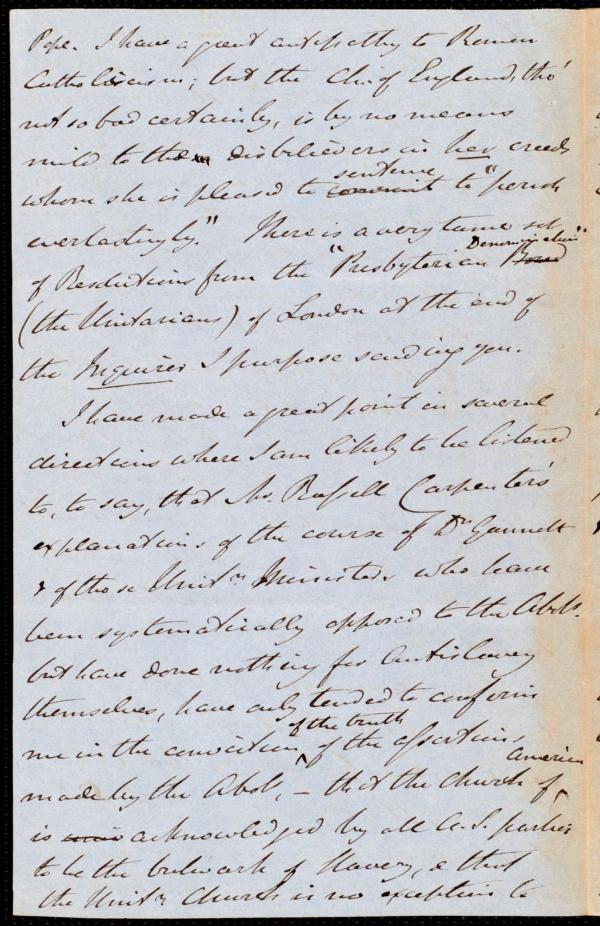 Pope. I have a great antipathy to Roman
Catholicism; but the Ch. of England, tho'
not so bad certainly, is by no means
mild to the disbelievers in her creeds
whom she is pleased to sentence to "perish
everlastingly." There is a very tame set
of Resolutions from the "Presbyterian Denomination"
(the Unitarians) of London at the end of
the Inquirer I purpose sending you.
I have made a great point in several
directions where I am likely to be listened
to, to say, that Mr. Russell Carpenter's
explanations of the course of Dr. Gannett
& of those Unitn. Ministers who have
been systematically opposed to the Abols.
but have done nothing for Antislavery
themselves, have only tended to confirm
me in the conviction of the truth of the assertions
made by the Abols, – that the Church of America
is acknowledged by all A.S. parties
to be the bulwark of Slavery, & that
the Unitn. Church is no exception to